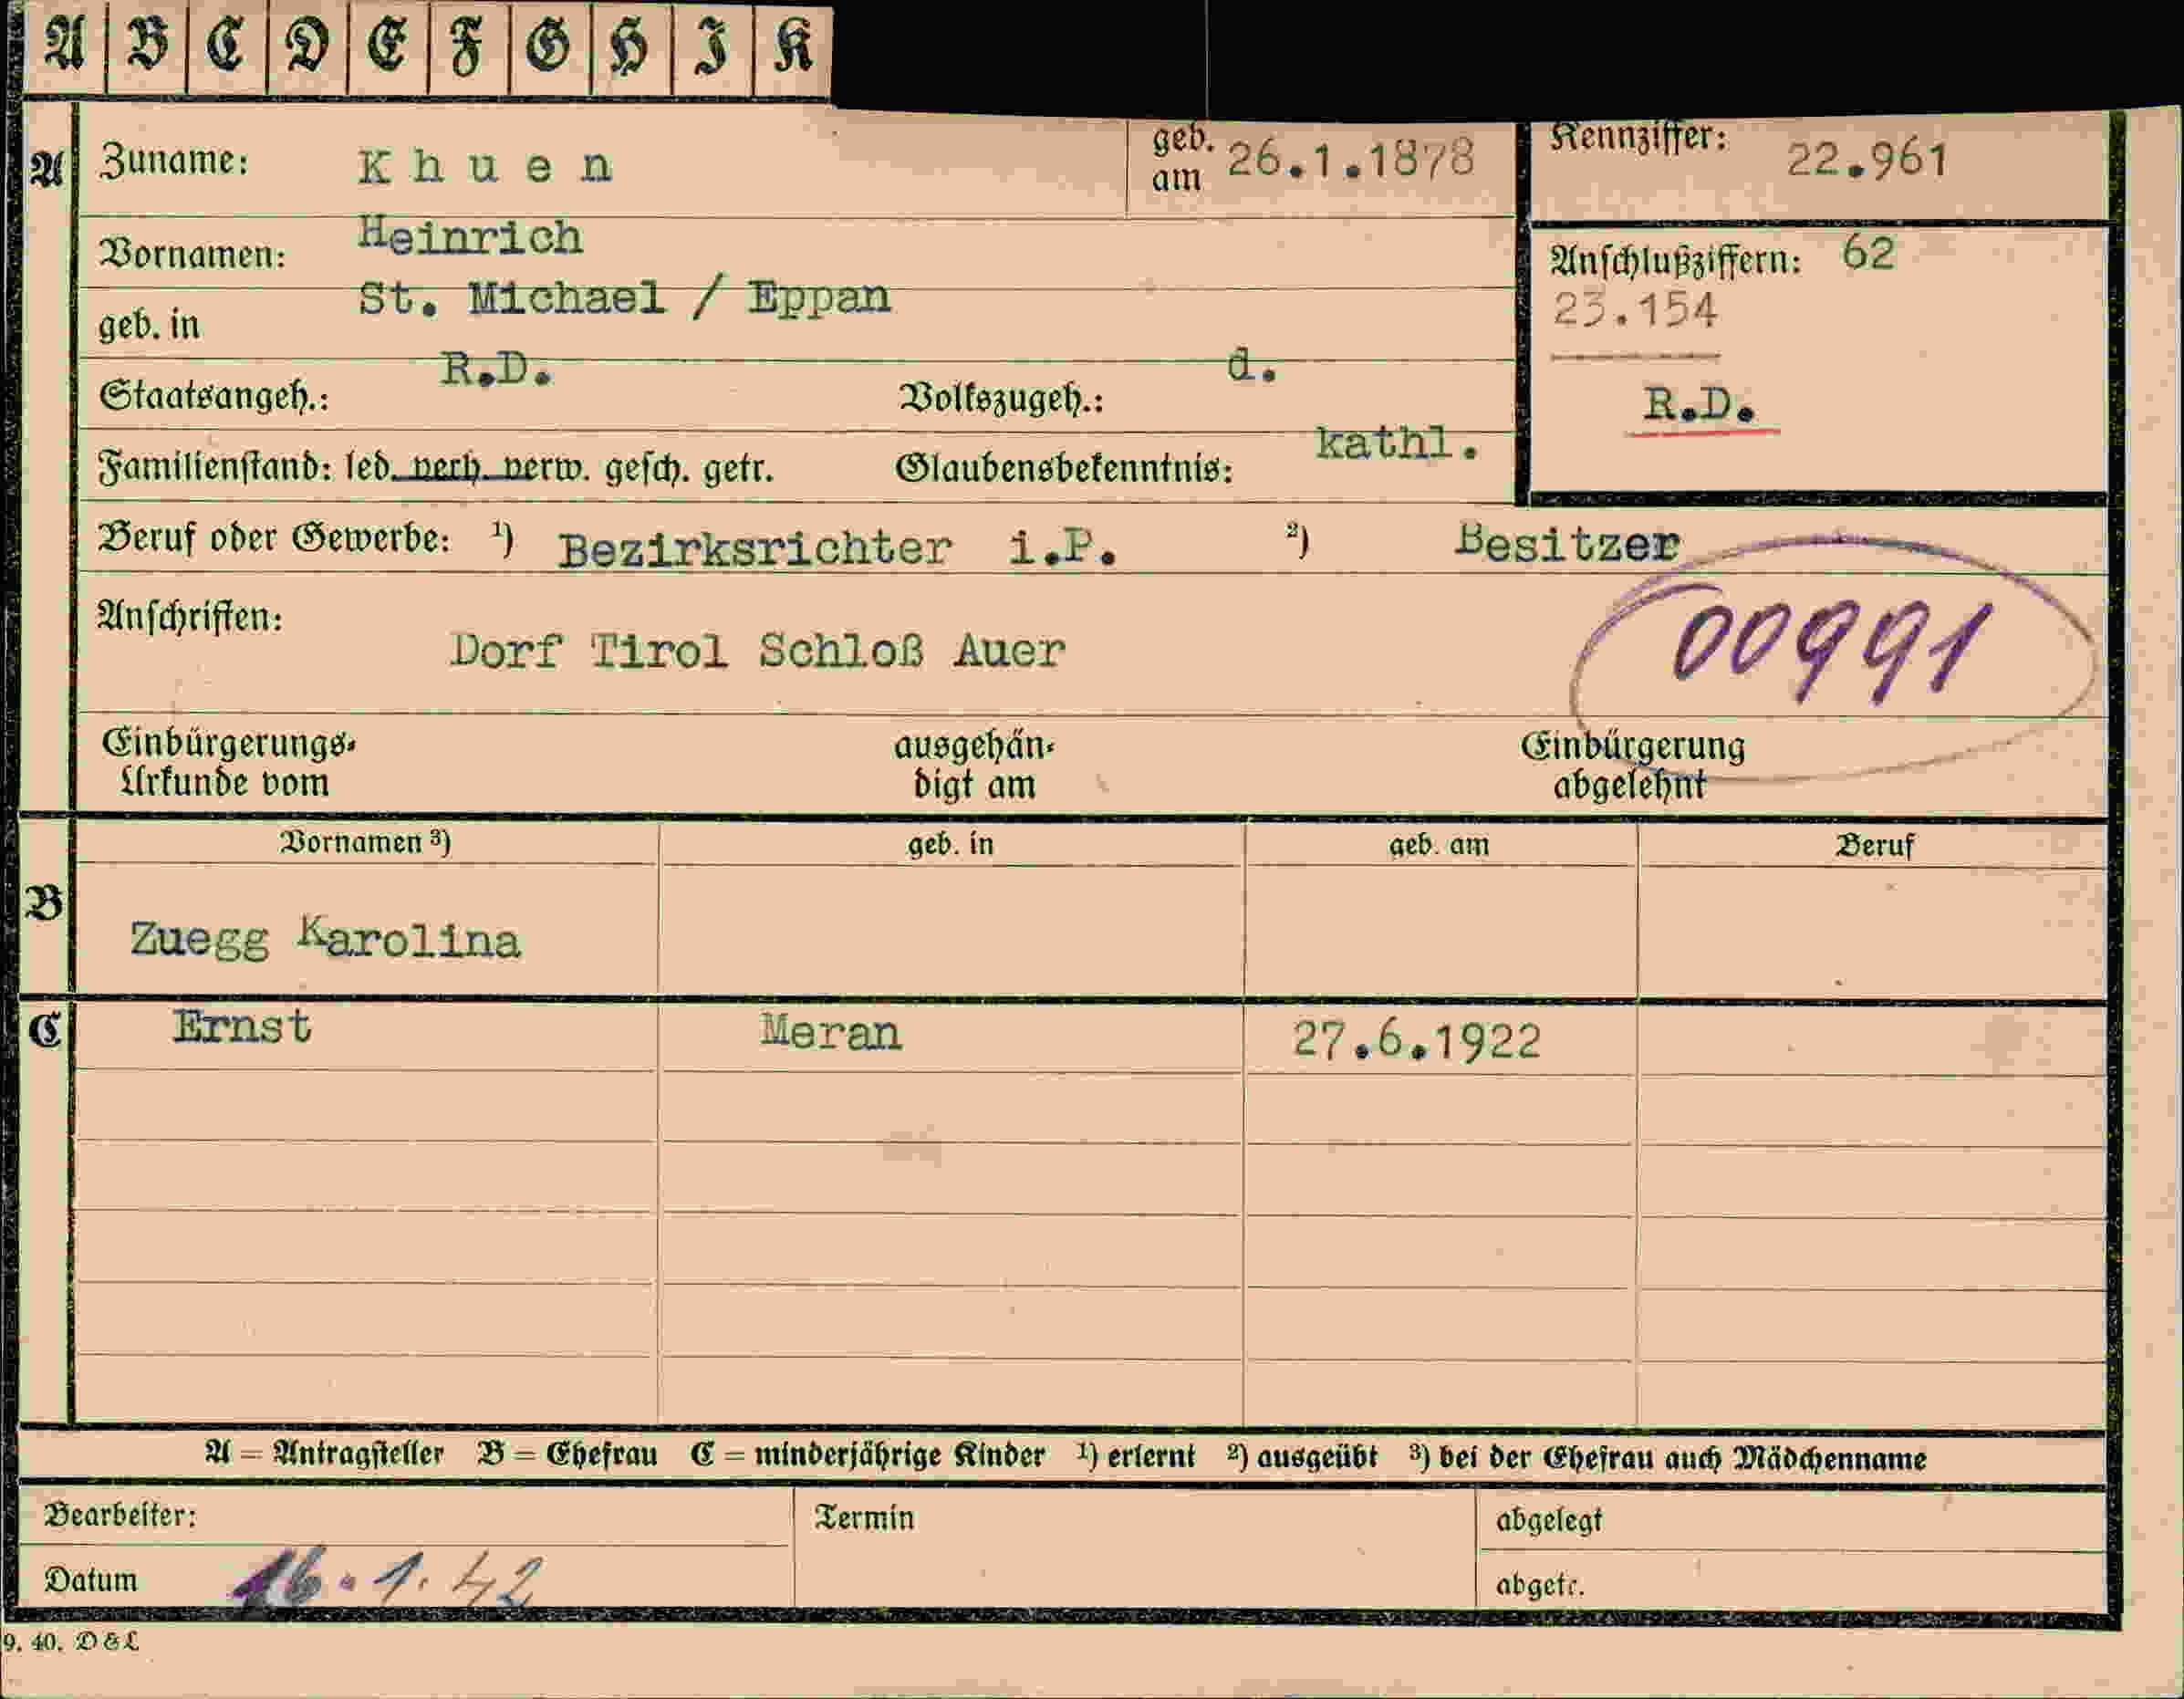 A B C D E F G H I K
A Zuname: Khuen geb. am 26.1.1878 Kennziffer: 22.961
Vornamen: Heinrich Anschlußziffern: 62
geb. in St. Michael / Eppan 23.154
Staatsangeh.: R.D. Volkszugeh.: d. R.D.
Familienstand: led. verh. verw. gesch. getr. Glaubensbekenntnis: kathl.
Beruf oder Gewerbe: 1) Bezirksrichter i.P. 2) Besitzer
Anschriften: Dorf Tirol Schloß Auer 00991
Einbürgerungs- ausgehän- Einbürgerung
Urkunde vom digt am abgelehnt
Vornamen 3) geb. in geb. am Beruf
B Zuegg Karolina
C Ernst Meran 27.6.1922
A = Antragsteller B = Ehefrau C = minderjährige Kinder 1) erlernt 2) ausgeübt 3) bei der Ehefrau auch Mädchenname
Bearbeiter: Termin abgelegt
Datum 16.1.42 abgetr.
9. 40. D & L